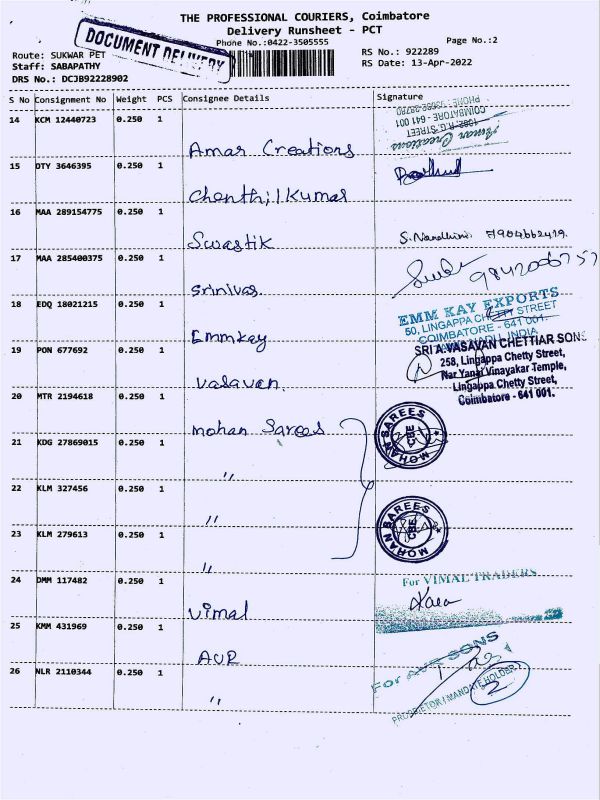 THE PROFESSIONAL COURIERS, Coimbatore
Delivery Runsheet - PCT
DOCUMENT DELIVERY
Phone No.:0422-3505555
Page No.:2
Route: SUKWAR PET
RS No.: 922289
Staff: SABAPATHY
RS Date: 13-Apr-2022
DRS No.: DCJB92228902
S No Consignment No Weight PCS Consignee Details Signature
14 KCM 12440723 0.250 1
COIMBATORE - 641 001
Amar Creations
Amar Creations
15 DTY 3646395 0.250 1
Chenthil Kumar
16 MAA 289154775 0.250 1
Swastik S. Nandhini 7904662419.
17 MAA 285400375 0.250 1
Srinivas.
18 EDQ 18021215 0.250 1
EMM KAY EXPORTS
50, LINGAPPA CHETTY STREET
COIMBATORE - 641 001.
TAMIL NADU, INDIA
Emmkay
19 PON 677692 0.250 1
SRI A.VASAVAN CHETTIAR SONS
258, Lingappa Chetty Street,
Nar Yanai Vinayakar Temple,
Lingappa Chetty Street,
Coimbatore - 641 001.
Vasavan.
20 MTR 2194618 0.250 1
mohan Sarees
MOHAN SAREES
CBE
21 KDG 27869015 0.250 1
"
22 KLM 327456 0.250 1
"
MOHAN SAREES
CBE
23 KLM 279613 0.250 1
"
24 DMM 117482 0.250 1
For VIMAL TRADERS
Vimal
25 KMM 431969 0.250 1
AVR
For AVR SONS
26 NLR 2110344 0.250 1
"
PROPRIETOR / MANDATE HOLDER
2